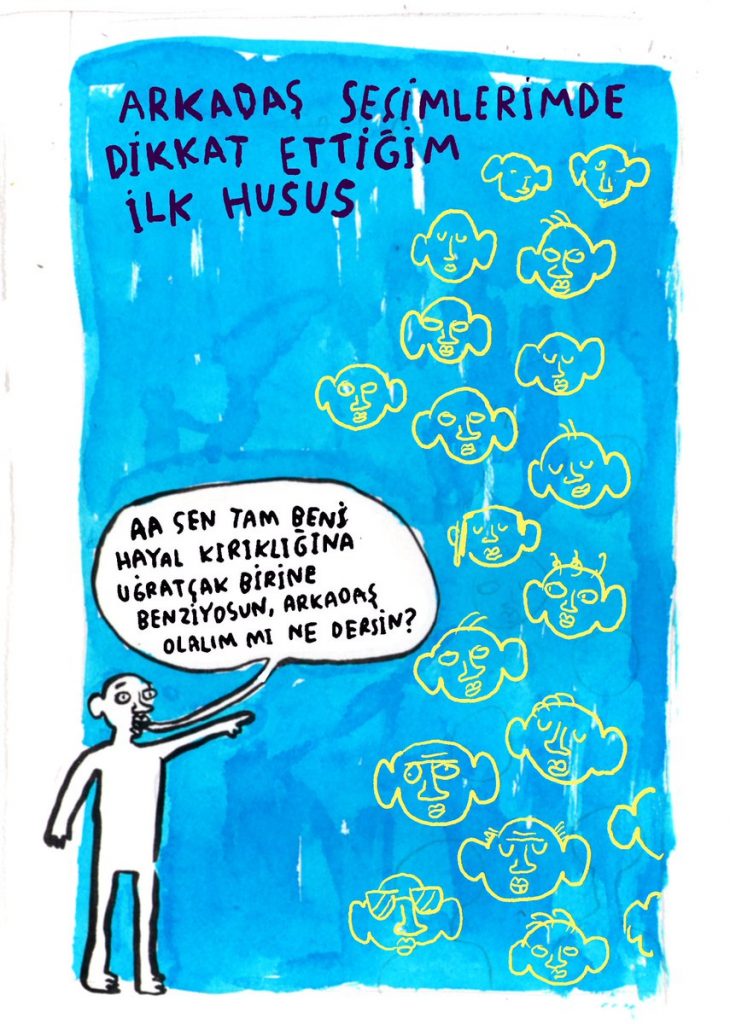 ARKADAŞ SEÇİMLERİMDE
DİKKAT ETTİĞİM
İLK HUSUS
AA SEN TAM BENİ
HAYAL KIRIKLIĞINA
UĞRATÇAK BİRİNE
BENZİYOSUN, ARKADAŞ
OLALIM MI NE DERSİN?